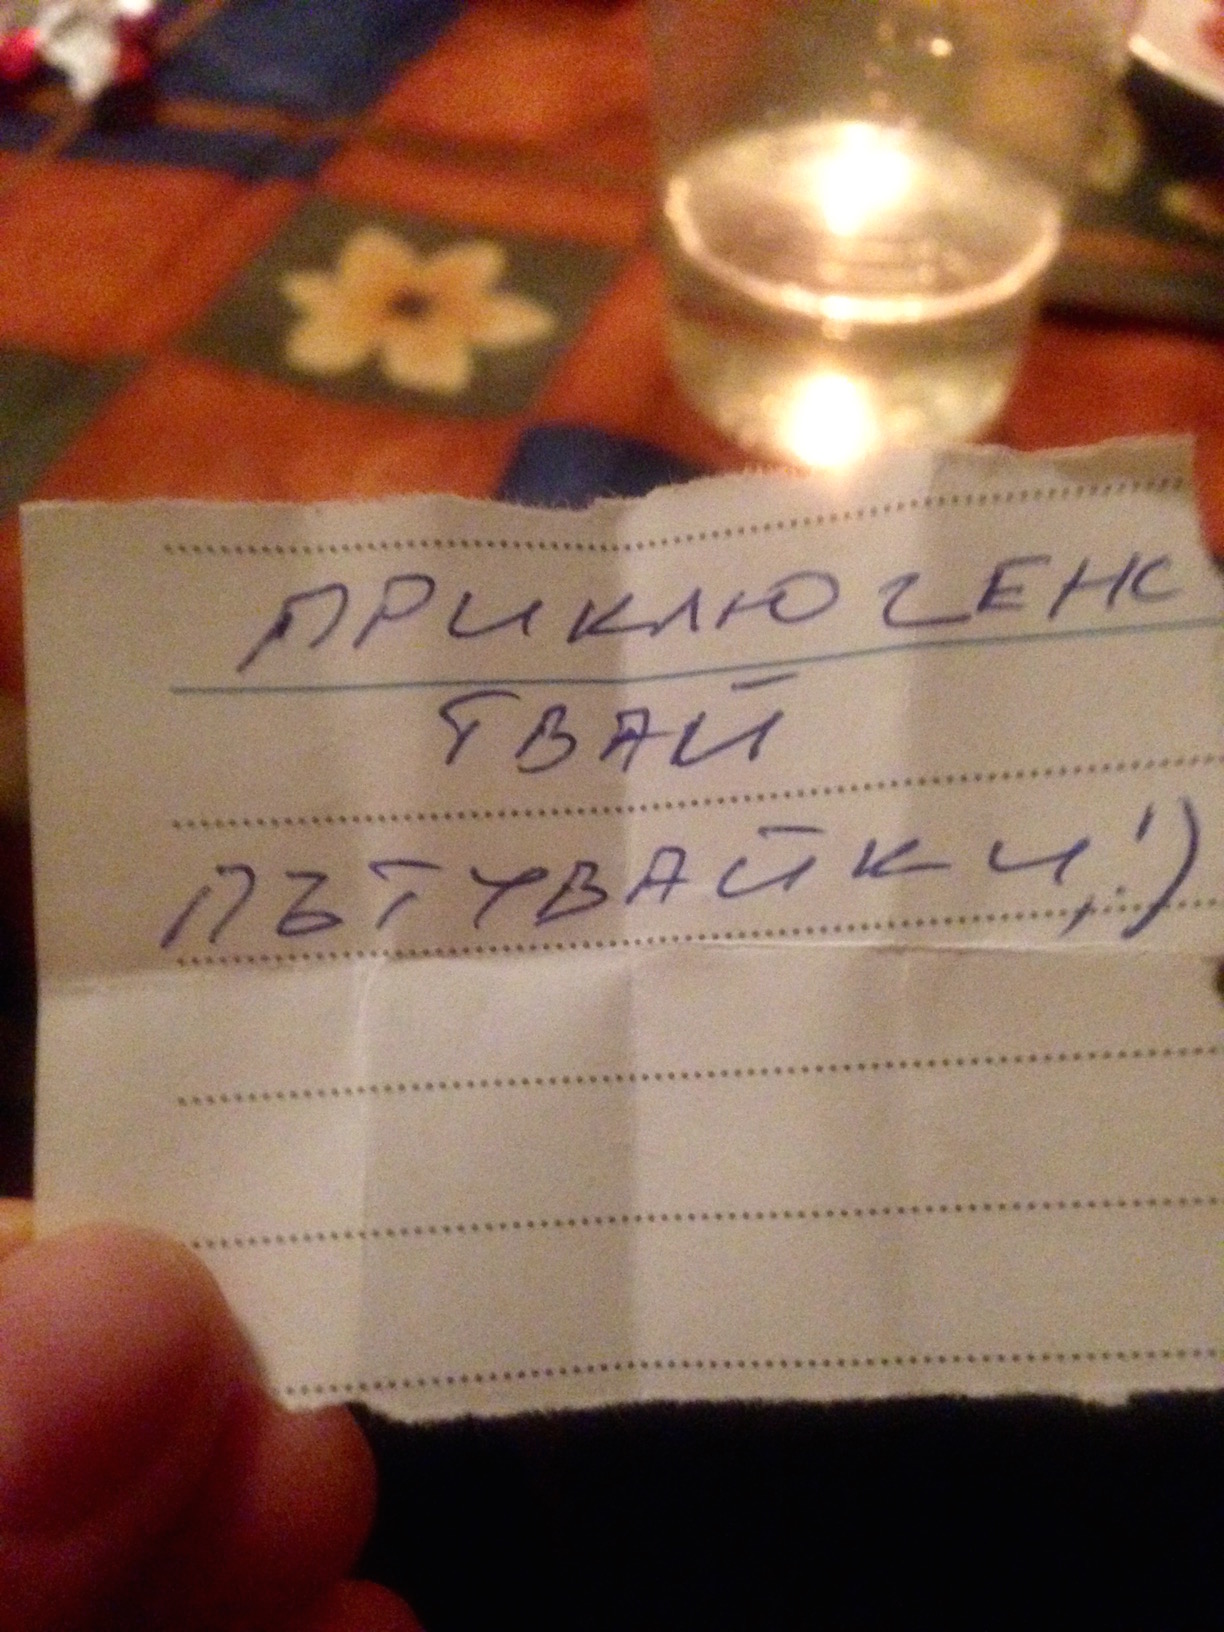 ПРИКЛЮЧЕНС
ТВАЙ
ПЪТУВАЙКИ! :)